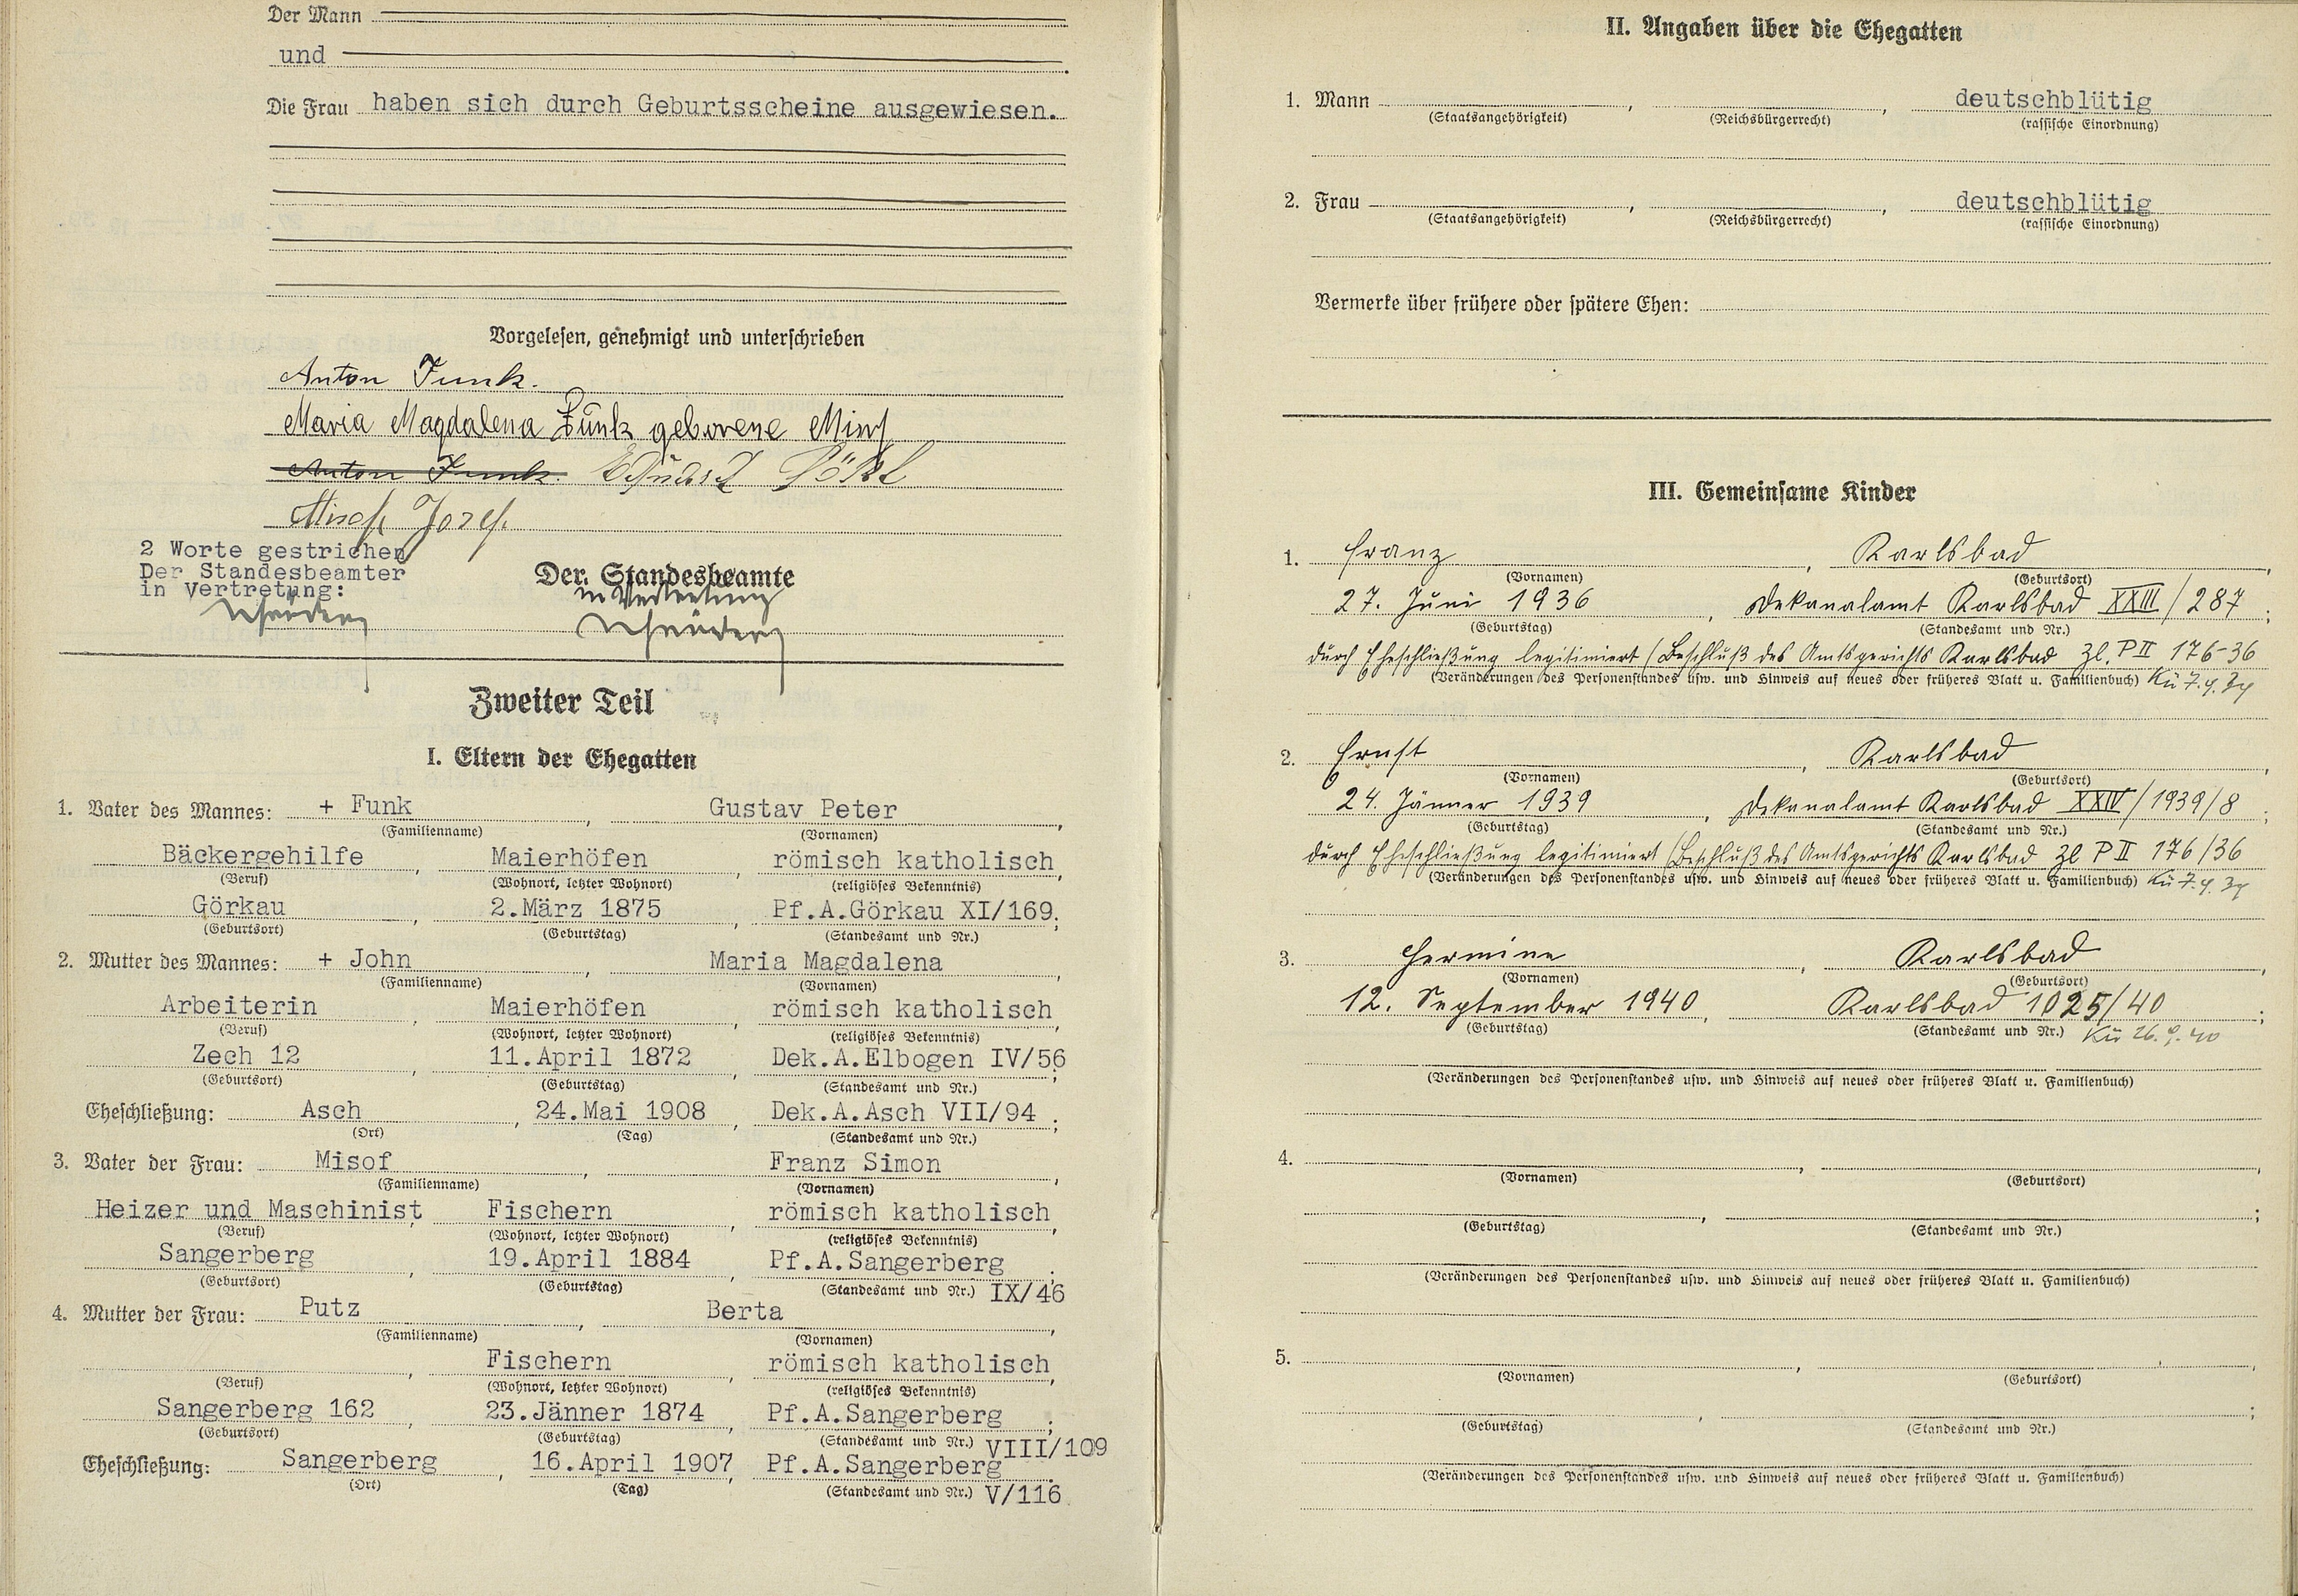 Der Mann
und
Die Frau haben sich durch Geburtsscheine ausgewiesen.
Vorgelesen, genehmigt und unterschrieben
Anton Funk.
Maria Magdalena Funk geborene Misof
Anton Funk. Eduard
Misof Josef.
2 Worte gestrichen
Der Standesbeamter
in Vertretung:
Der Standesbeamte
in Vertretung
Zweiter Teil
I. Eltern der Ehegatten
1. Vater des Mannes: + Funk, Gustav Peter,
(Familienname) (Vornamen)
Bäckergehilfe, Maierhöfen, römisch katholisch,
(Beruf) (Wohnort, letzter Wohnort) (religiöses Bekenntnis)
Görkau, 2.März 1875, Pf.A.Görkau XI/169;
(Geburtsort) (Geburtstag) (Standesamt und Nr.)
2. Mutter des Mannes: + John, Maria Magdalena,
(Familienname) (Vornamen)
Arbeiterin, Maierhöfen, römisch katholisch,
(Beruf) (Wohnort, letzter Wohnort) (religiöses Bekenntnis)
Zech 12, 11.April 1872, Dek.A.Elbogen IV/56;
(Geburtsort) (Geburtstag) (Standesamt und Nr.)
Eheschließung: Asch, 24.Mai 1908, Dek.A.Asch VII/94;
(Ort) (Tag) (Standesamt und Nr.)
3. Vater der Frau: Misof, Franz Simon,
(Familienname) (Vornamen)
Heizer und Maschinist, Fischern, römisch katholisch,
(Beruf) (Wohnort, letzter Wohnort) (religiöses Bekenntnis)
Sangerberg, 19.April 1884, Pf.A.Sangerberg;
(Geburtsort) (Geburtstag) (Standesamt und Nr.) IX/46
4. Mutter der Frau: Putz, Berta,
(Familienname) (Vornamen)
, Fischern, römisch katholisch,
(Beruf) (Wohnort, letzter Wohnort) (religiöses Bekenntnis)
Sangerberg 162, 23.Jänner 1874, Pf.A.Sangerberg;
(Geburtsort) (Geburtstag) (Standesamt und Nr.) VIII/109
Eheschließung: Sangerberg, 16.April 1907, Pf.A.Sangerberg.
(Ort) (Tag) (Standesamt und Nr.) V/116
II. Angaben über die Ehegatten
1. Mann , , deutschblütig
(Staatsangehörigkeit) (Reichsbürgerrecht) (rassische Einordnung)
2. Frau , , deutschblütig
(Staatsangehörigkeit) (Reichsbürgerrecht) (rassische Einordnung)
Vermerke über frühere oder spätere Ehen:
III. Gemeinsame Kinder
1. Franz, Karlsbad,
(Vornamen) (Geburtsort)
27. Juni 1936, Dekanalamt Karlsbad XXIII/287;
(Geburtstag) (Standesamt und Nr.)
durch Eheschließung legitimiert (Beschluß des Amtsgerichts Karlsbad Zl. P II 176-36
(Veränderungen des Personenstandes usw. und Hinweis auf neues oder früheres Blatt u. Familienbuch) Kü 7.9.39
2. Ernst, Karlsbad,
(Vornamen) (Geburtsort)
24. Jänner 1939, Dekanalamt Karlsbad XXIV/1939/8;
(Geburtstag) (Standesamt und Nr.)
durch Eheschließung legitimiert (Beschluß des Amtsgerichts Karlsbad Zl P II 176/36
(Veränderungen des Personenstandes usw. und Hinweis auf neues oder früheres Blatt u. Familienbuch) Kü 7.9.39
3. Hermine, Karlsbad,
(Vornamen) (Geburtsort)
12. September 1940, Karlsbad 1025/40;
(Geburtstag) (Standesamt und Nr.) Kü 26.9.40
(Veränderungen des Personenstandes usw. und Hinweis auf neues oder früheres Blatt u. Familienbuch)
4. , ,
(Vornamen) (Geburtsort)
, ;
(Geburtstag) (Standesamt und Nr.)
(Veränderungen des Personenstandes usw. und Hinweis auf neues oder früheres Blatt u. Familienbuch)
5. , ,
(Vornamen) (Geburtsort)
, ;
(Geburtstag) (Standesamt und Nr.)
(Veränderungen des Personenstandes usw. und Hinweis auf neues oder früheres Blatt u. Familienbuch)